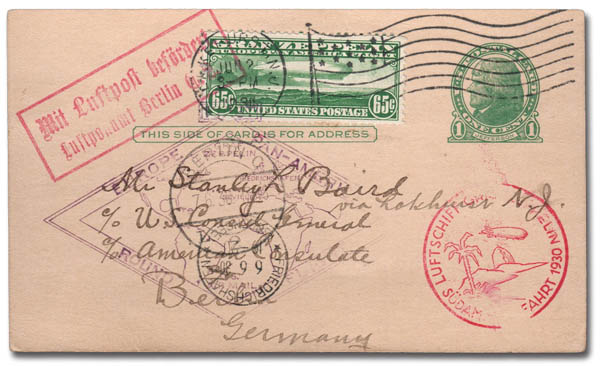 Mit Luftpost befördert
Luftpostamt Berlin
GRAF ZEPPELIN
EUROPE-PAN-AMERICA FLIGHT
65c UNITED STATES POSTAGE 65c
1 1
JEFFERSON
THIS SIDE OF CARD IS FOR ADDRESS
EUROPE PAN-AMERICA
ROUND
Mr Stanley L Baird
via Lakehurst N.J.
c/o U.S. Consul General
c/o American Consulate
Berlin
Germany
FRIEDRICHSHAFEN
LUFTSCHIFF ZEPPELIN
SÜDAMERIKAFAHRT 1930